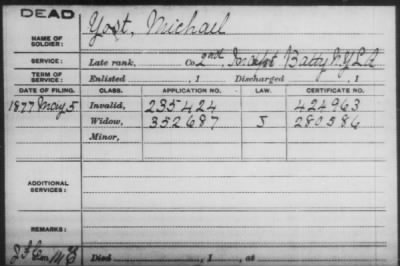 DEAD
Yost, Michael
NAME OF
SOLDIER:
SERVICE: Late rank, Co. 2nd, Indept Batty N.Y. L A
TERM OF
SERVICE: Enlisted , 1 Discharged , 1
DATE OF FILING. CLASS. APPLICATION NO. LAW. CERTIFICATE NO.
1877 May 5 Invalid, 235424 424963
Widow, 352687 J 280586
Minor,
ADDITIONAL
SERVICES:
REMARKS:
Died , 1 , at